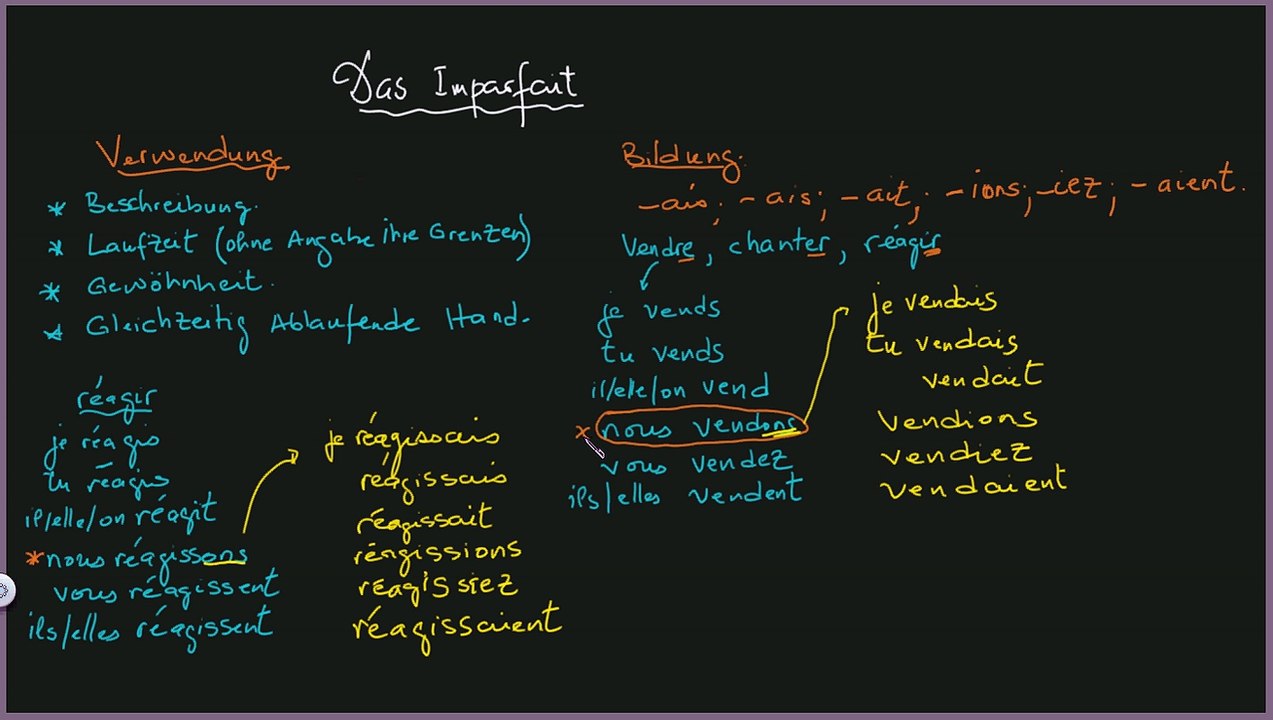 Das Imparfait
Verwendung
* Beschreibung.
* Laufzeit (ohne Angabe ihre Grenzen)
* Gewöhnheit.
* Gleichzeitig Ablaufende Hand.
réagir
je réagis
tu réagis
il/elle/on réagit
* nous réagissons
vous réagissent
ils/elles réagissent
je réagissais
réagissais
réagissait
réagissions
réagissiez
réagissaient
Bildung:
-ais; -ais; -ait; -ions; -iez; -aient.
Vendre, chanter, réagir
je vends
tu vends
il/elle/on vend
* nous vendons
vous vendez
ils/elles vendent
je vendais
tu vendais
vendait
vendions
vendiez
vendaient